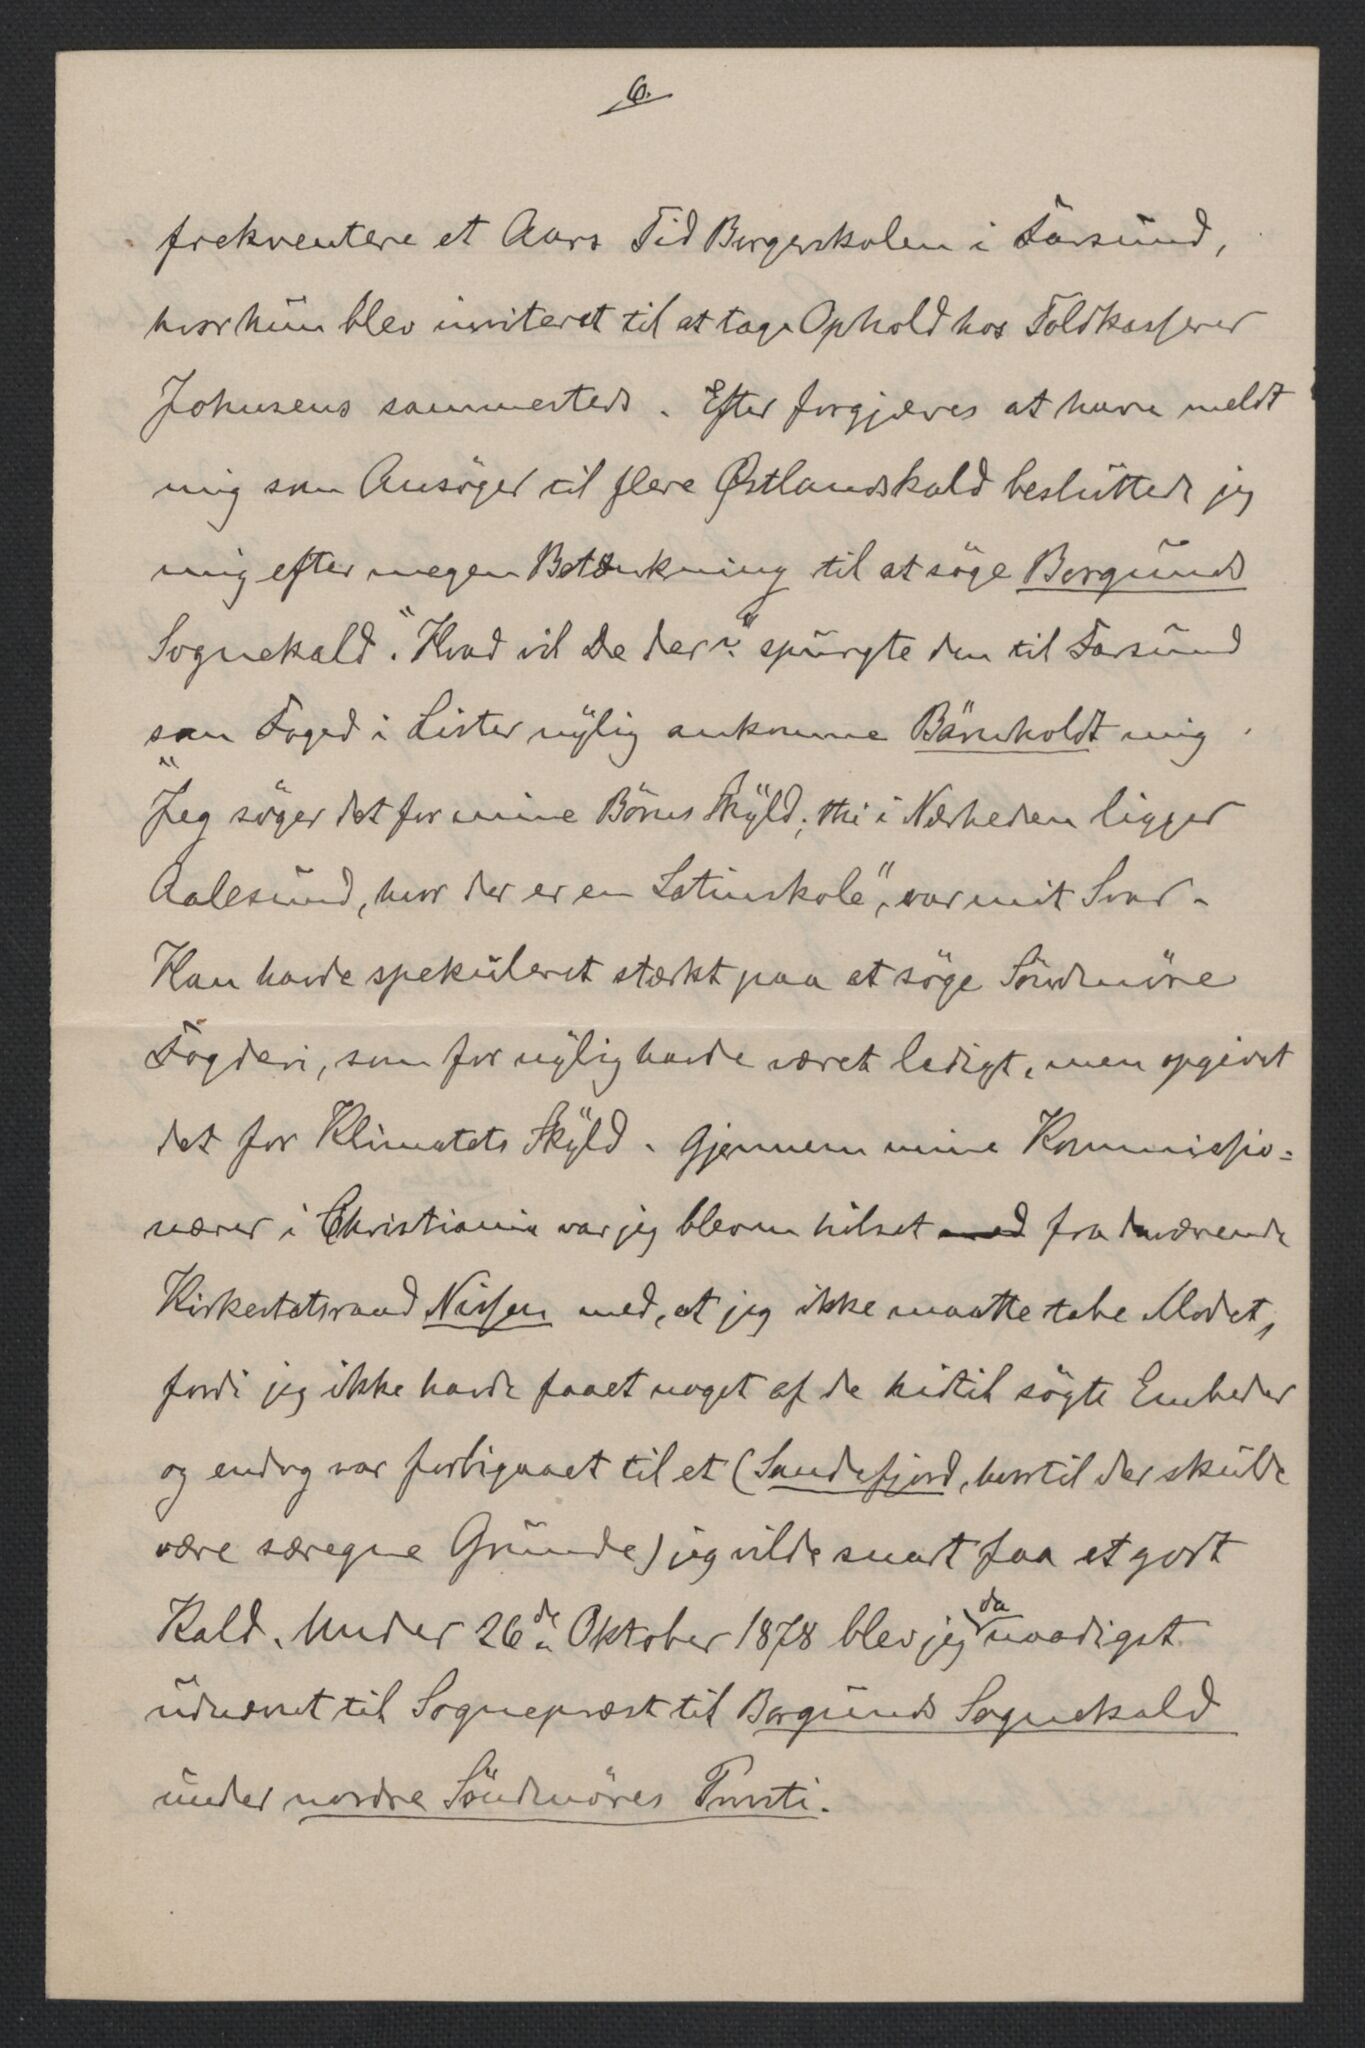 6.
frekventere et Aars Tid Borgerskolen i Farsund,
hvor hun blev inviteret til at tage Ophold hos Toldkasserer
Johnsens sammesteds. Efter forgjæves at have meldt
mig som Ansöger til flere Østlandskald besluttede jeg
mig efter megen Betænkning til at söge Borgunds
Sognekald. "Hvad vil De der?" spurgte den til Farsund
som Foged i Lister nylig ankomne Bärnholdt mig.
"Jeg söger det for mine Börns Skyld; thi i Nærheden ligger
Aalesund, hvor der er en Latinskole", var mit Svar.
Han havde spekuleret stærkt paa at söge Söndmöre
Fogderi, som for nylig havde været ledigt, men opgivet
det for Klimatets Skyld. Gjennem mine Kommissio=
nærer i Christiania var jeg bleven hilset med fra daværende
Kirkestatsraad Nissen med, at jeg ikke maatte tabe Modet,
fordi jeg ikke havde faaet noget af de hidtil sögte Embeder
og endog var forbigaaet til et (Sandefjord, hvortil der skulde
være særegne Grunde) jeg vilde snart faa et godt
Kald. Under 26de Oktober 1878 blev jeg da naadigst
udnævnt til Sognepræst til Borgunds Sognekald
under nordre Söndmöres Provsti.